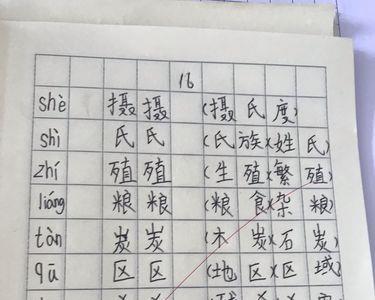 16
shè 摄 摄 (摄 氏 度)
shì 氏 氏 (氏 族)(姓 氏)
zhí 殖 殖 (生 殖)(繁 殖)
liáng 粮 粮 (粮 食)(杂 粮)
tàn 炭 炭 (木 炭)(石 炭)
qū 区 区 (地 区)(区 域)